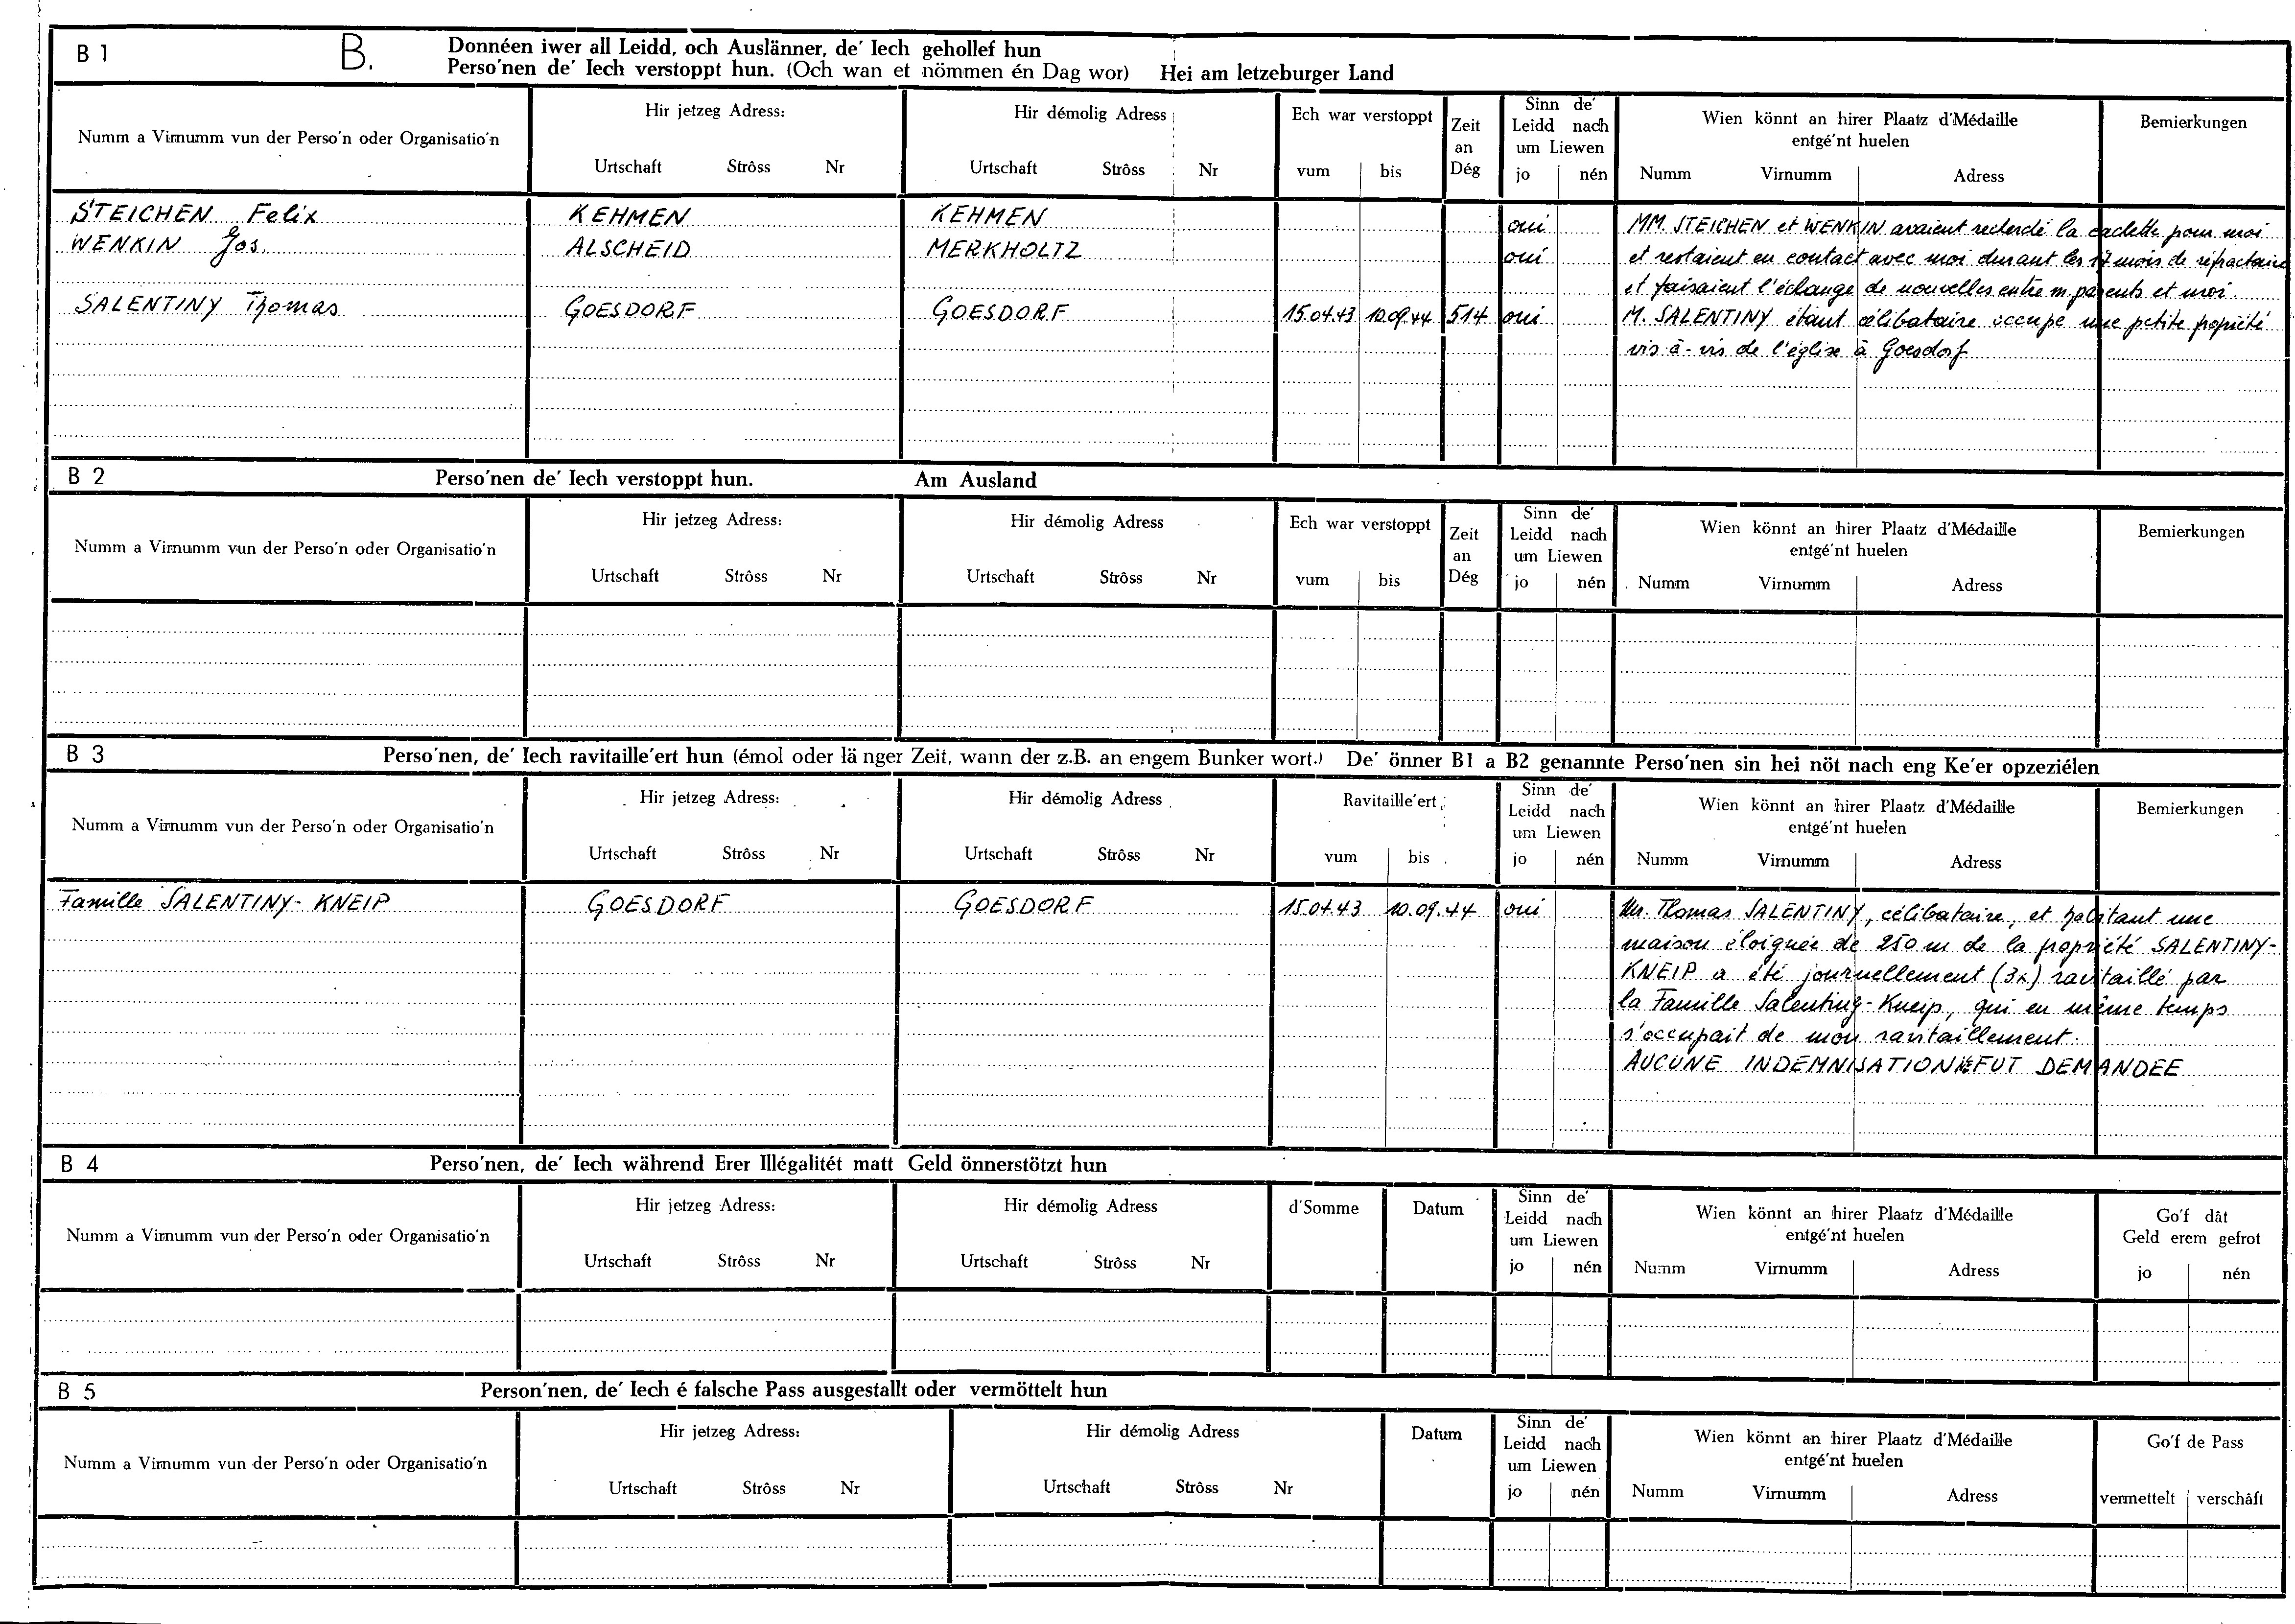 B 1 B. Donnéen iwer all Leidd, och Auslänner, de' Iech gehollef hun
Perso'nen de' Iech verstoppt hun. (Och wan et nömmen én Dag wor) Hei am letzeburger Land
Numm a Virnumm vun der Perso'n oder Organisatio'n
Hir jetzeg Adress:
Urtschaft Strôss Nr
Hir démolig Adress
Urtschaft Strôss Nr
Ech war verstoppt
vum bis
Zeit
an
Dég
Sinn de'
Leidd nach
um Liewen
jo nén
Wien könnt an hirer Plaatz d'Médaille
entgé'nt huelen
Numm Virnumm Adress
Bemierkungen
STEICHEN Felix KEHMEN KEHMEN oui MM. STEICHEN et WENKIN avaient recherché la cachette pour moi
WENKIN Jos ALSCHEID MERKHOLTZ oui et restaient en contact avec moi durant les 17 mois de réfractaire
et faisaient l'échange de nouvelles entre m. parents et moi.
SALENTINY Thomas GOESDORF GOESDORF 15.04.43 10.09.44 514 oui M. SALENTINY étant célibataire occupe une petite propriété
vis-à-vis de l'église à Goesdorf
B 2 Perso'nen de' Iech verstoppt hun. Am Ausland
Numm a Virnumm vun der Perso'n oder Organisatio'n
Hir jetzeg Adress:
Urtschaft Strôss Nr
Hir démolig Adress
Urtschaft Strôss Nr
Ech war verstoppt
vum bis
Zeit
an
Dég
Sinn de'
Leidd nach
um Liewen
jo nén
Wien könnt an hirer Plaatz d'Médaille
entgé'nt huelen
Numm Virnumm Adress
Bemierkungen
B 3 Perso'nen, de' Iech ravitaille'ert hun (émol oder länger Zeit, wann der z.B. an engem Bunker wort.) De' önner B1 a B2 genannte Perso'nen sin hei nöt nach eng Ke'er opzeziélen
Numm a Virnumm vun der Perso'n oder Organisatio'n
Hir jetzeg Adress:
Urtschaft Strôss Nr
Hir démolig Adress
Urtschaft Strôss Nr
Ravitaille'ert
vum bis
Sinn de'
Leidd nach
um Liewen
jo nén
Wien könnt an hirer Plaatz d'Médaille
entgé'nt huelen
Numm Virnumm Adress
Bemierkungen
Famille SALENTINY-KNEIP GOESDORF GOESDORF 15.04.43 10.09.44 oui Mr. Thomas SALENTINY, célibataire, et habitant une
maison éloignée de 250 m de la propriété SALENTINY-
KNEIP a été journellement (3x) ravitaillé par
la Famille Salentiny-Kneip, qui en même temps
s'occupait de mon ravitaillement.
AUCUNE INDEMNISATION NE FUT DEMANDEE
B 4 Perso'nen, de' Iech während Erer Illégalitét matt Geld önnerstötzt hun
Numm a Virnumm vun der Perso'n oder Organisatio'n
Hir jetzeg Adress:
Urtschaft Strôss Nr
Hir démolig Adress
Urtschaft Strôss Nr
d'Somme
Datum
Sinn de'
Leidd nach
um Liewen
jo nén
Wien könnt an hirer Plaatz d'Médaille
entgé'nt huelen
Numm Virnumm Adress
Go'f dât
Geld erem gefrot
jo nén
B 5 Person'nen, de' Iech é falsche Pass ausgestallt oder vermöttelt hun
Numm a Virnumm vun der Perso'n oder Organisatio'n
Hir jetzeg Adress:
Urtschaft Strôss Nr
Hir démolig Adress
Urtschaft Strôss Nr
Datum
Sinn de'
Leidd nach
um Liewen
jo nén
Wien könnt an hirer Plaatz d'Médaille
entgé'nt huelen
Numm Virnumm Adress
Go'f de Pass
vermettelt verschâft